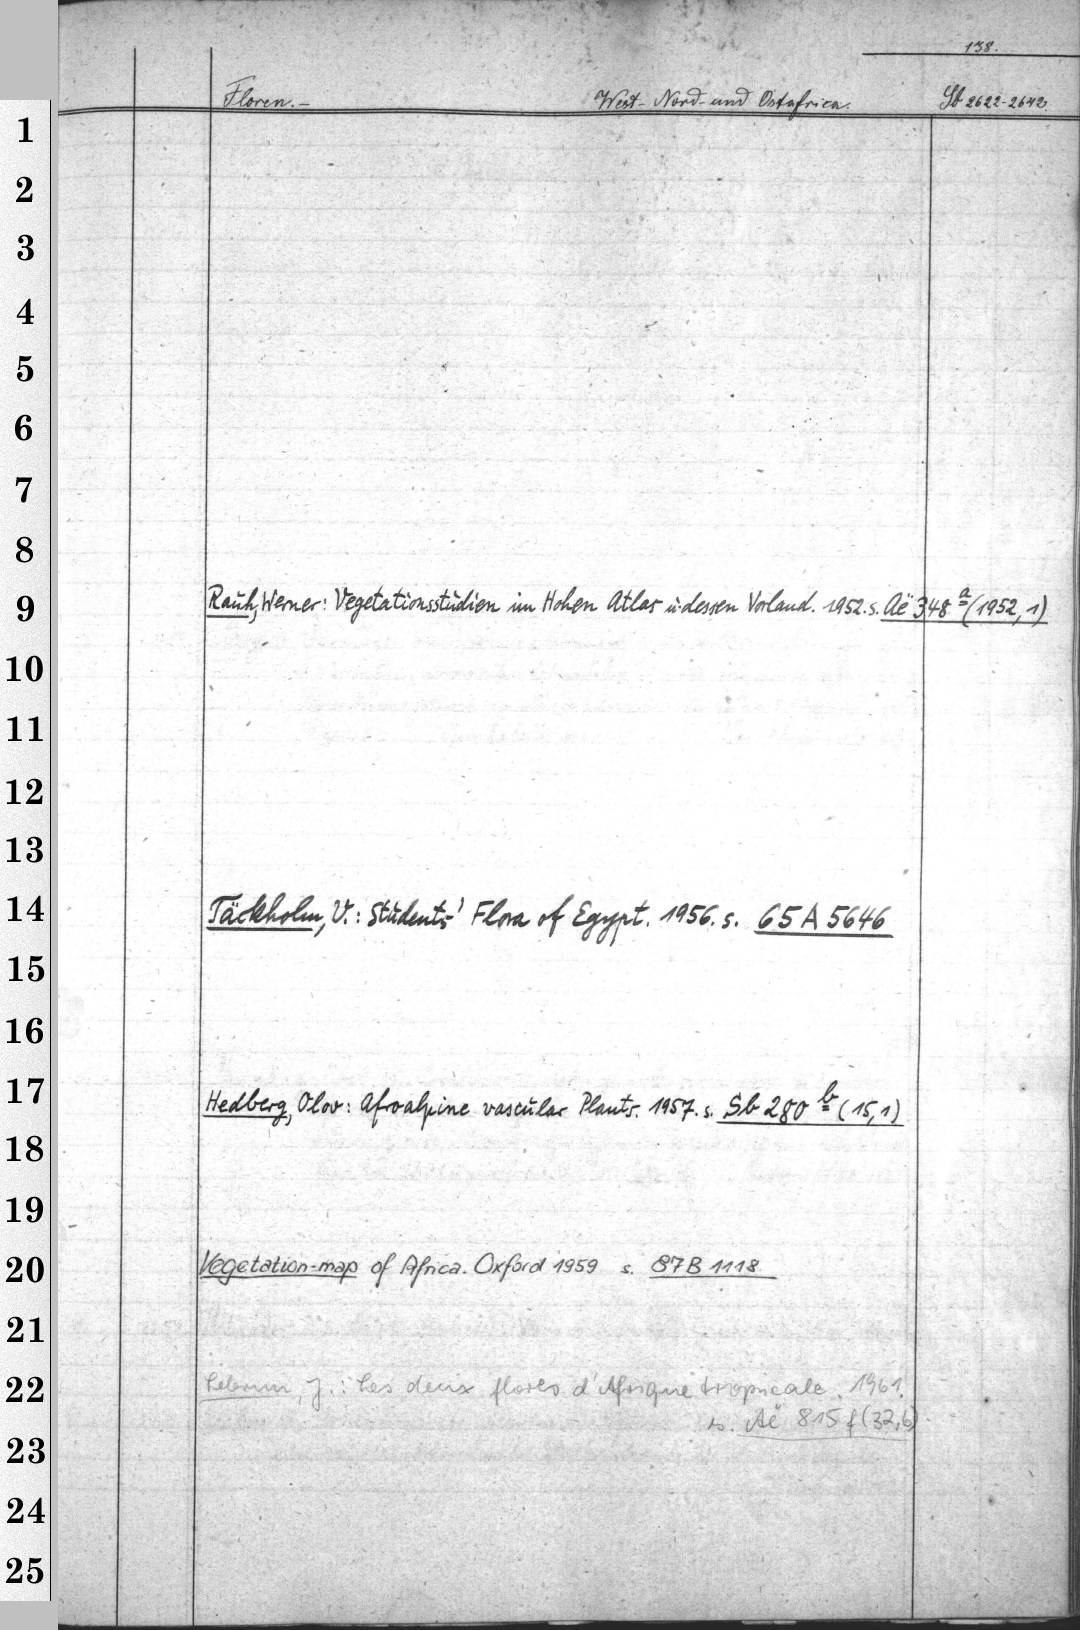 138.
Floren.- West- Nord- und Ostafrica. Sb 2622-2642
1
2
3
4
5
6
7
8
9 Rauh, Werner: Vegetationsstudien im Hohen Atlas u. dessen Vorland. 1952. s. Aë 348 a (1952, 1)
10
11
12
13
14 Täckholm, V.: Students' Flora of Egypt. 1956. s. 65 A 5646
15
16
17 Hedberg, Olov: Afroalpine vascular Plants. 1957. s. Sb 280 b (15,1)
18
19
20 Vegetation-map of Africa. Oxford 1959 s. 87 B 1118
21
22 Lebrun, J.: Les deux flores d'Afrique tropicale. 1961.
s. Aë 815 f (32,6)
23
24
25